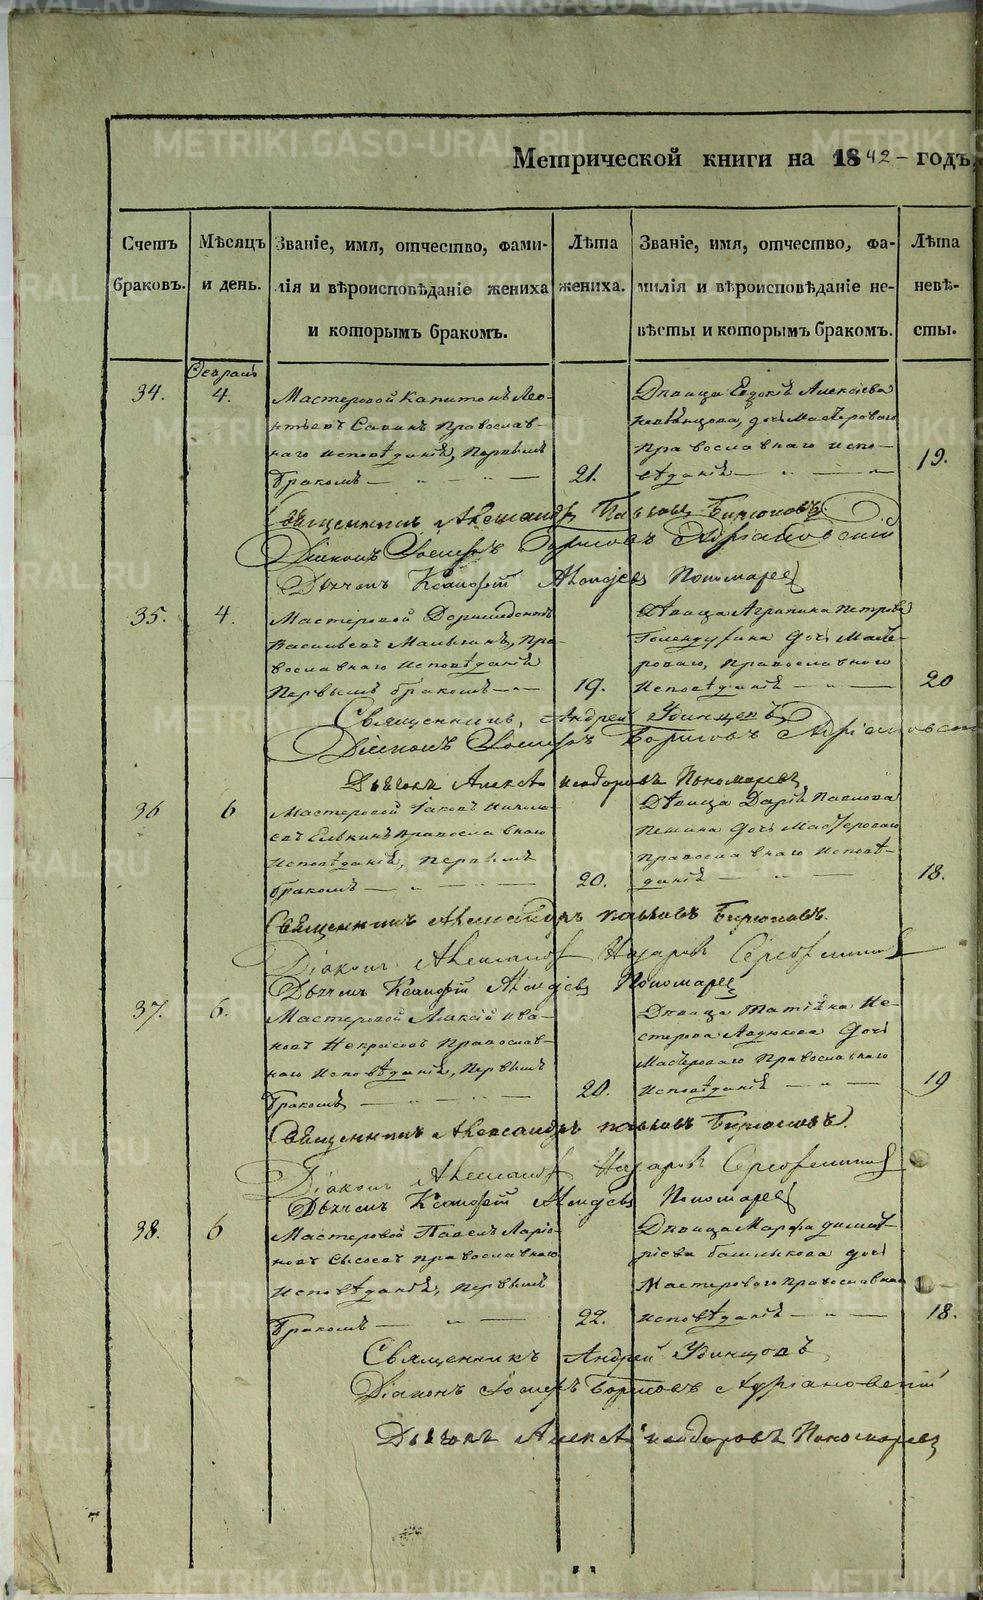 Метрической книги на 1842 – годъ,
Счетъ браковъ.
Мѣсяцъ и день.
Званіе, имя, отчество, фами-
лія и вѣроисповѣданіе жениха
и которымъ бракомъ.
Лѣта
жениха.
Званіе, имя, отчество, фа-
милія и вѣроисповѣданіе не-
вѣсты и которымъ бракомъ.
Лѣта
невѣ-
сты.
34.
4.
Мастеровой Капитонъ Лео-
нтьевъ Савинъ Православ-
наго исповѣданія, Первымъ
бракомъ
21.
Дѣвица Евдокія Алексѣева
дочь Мастероваго
Православнаго испо-
вѣданія
19.
Священникъ Александръ Павловъ Бирюковъ
Діаконъ Іосифъ Борисовъ Адріановскій
Дьячекъ Ксанофтъ Пономаревъ
35.
4.
Мастеровой Доримедонтъ
Васильевъ Малыгинъ, Пра-
вославнаго исповѣданія
Первымъ бракомъ
19.
Дѣвица Агрипина Петрова
Голендухина дочь Масте-
роваго, Православнаго
исповѣданія
20
Священникъ, Андрей Удинцовъ
Діаконъ Іосифъ Борисовъ
Дьячекъ Алексѣй Ѳеодоровъ Пономаревъ
36
6
Мастеровой Іаковъ
Елькинъ Православнаго
исповѣданія, первымъ
бракомъ
20.
Дѣвица Дарія Павлова
Пешина дочь Мастероваго
Православнаго исповѣ-
данія
18.
Священникъ Александръ Павловъ Бирюковъ.
Діаконъ Александръ Назаровъ
Дьячекъ Ксанофтъ Пономаревъ
37.
6.
Мастеровой Алексій Ива-
новъ Некрасовъ Православ-
наго исповѣданія, Первымъ
бракомъ
20.
Дѣвица Татіяна Не-
стерова Авдюкова дочь
Мастероваго Православнаго
исповѣданія
19
Священникъ Александръ Павловъ Бирюковъ.
Діаконъ Александръ Назаровъ
Дьячекъ Ксанофтъ Пономаревъ
38.
6
Мастеровой Павелъ Ларіо-
новъ Сысоевъ православнаго
исповѣданія, первымъ
бракомъ
22.
Дѣвица Марфа Димит-
ріева дочь
Мастероваго Православнаго
исповѣданія
18.
Священникъ Андрей Удинцовъ
Діаконъ Іосифъ Борисовъ Адріановскій
Дьячекъ Алексѣй Ѳеодоровъ Пономаревъ
METRIKI.GASO-URAL.RU